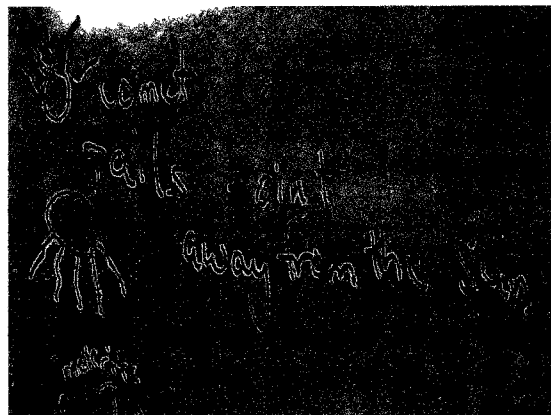 comet
Tails point
away from the Sun